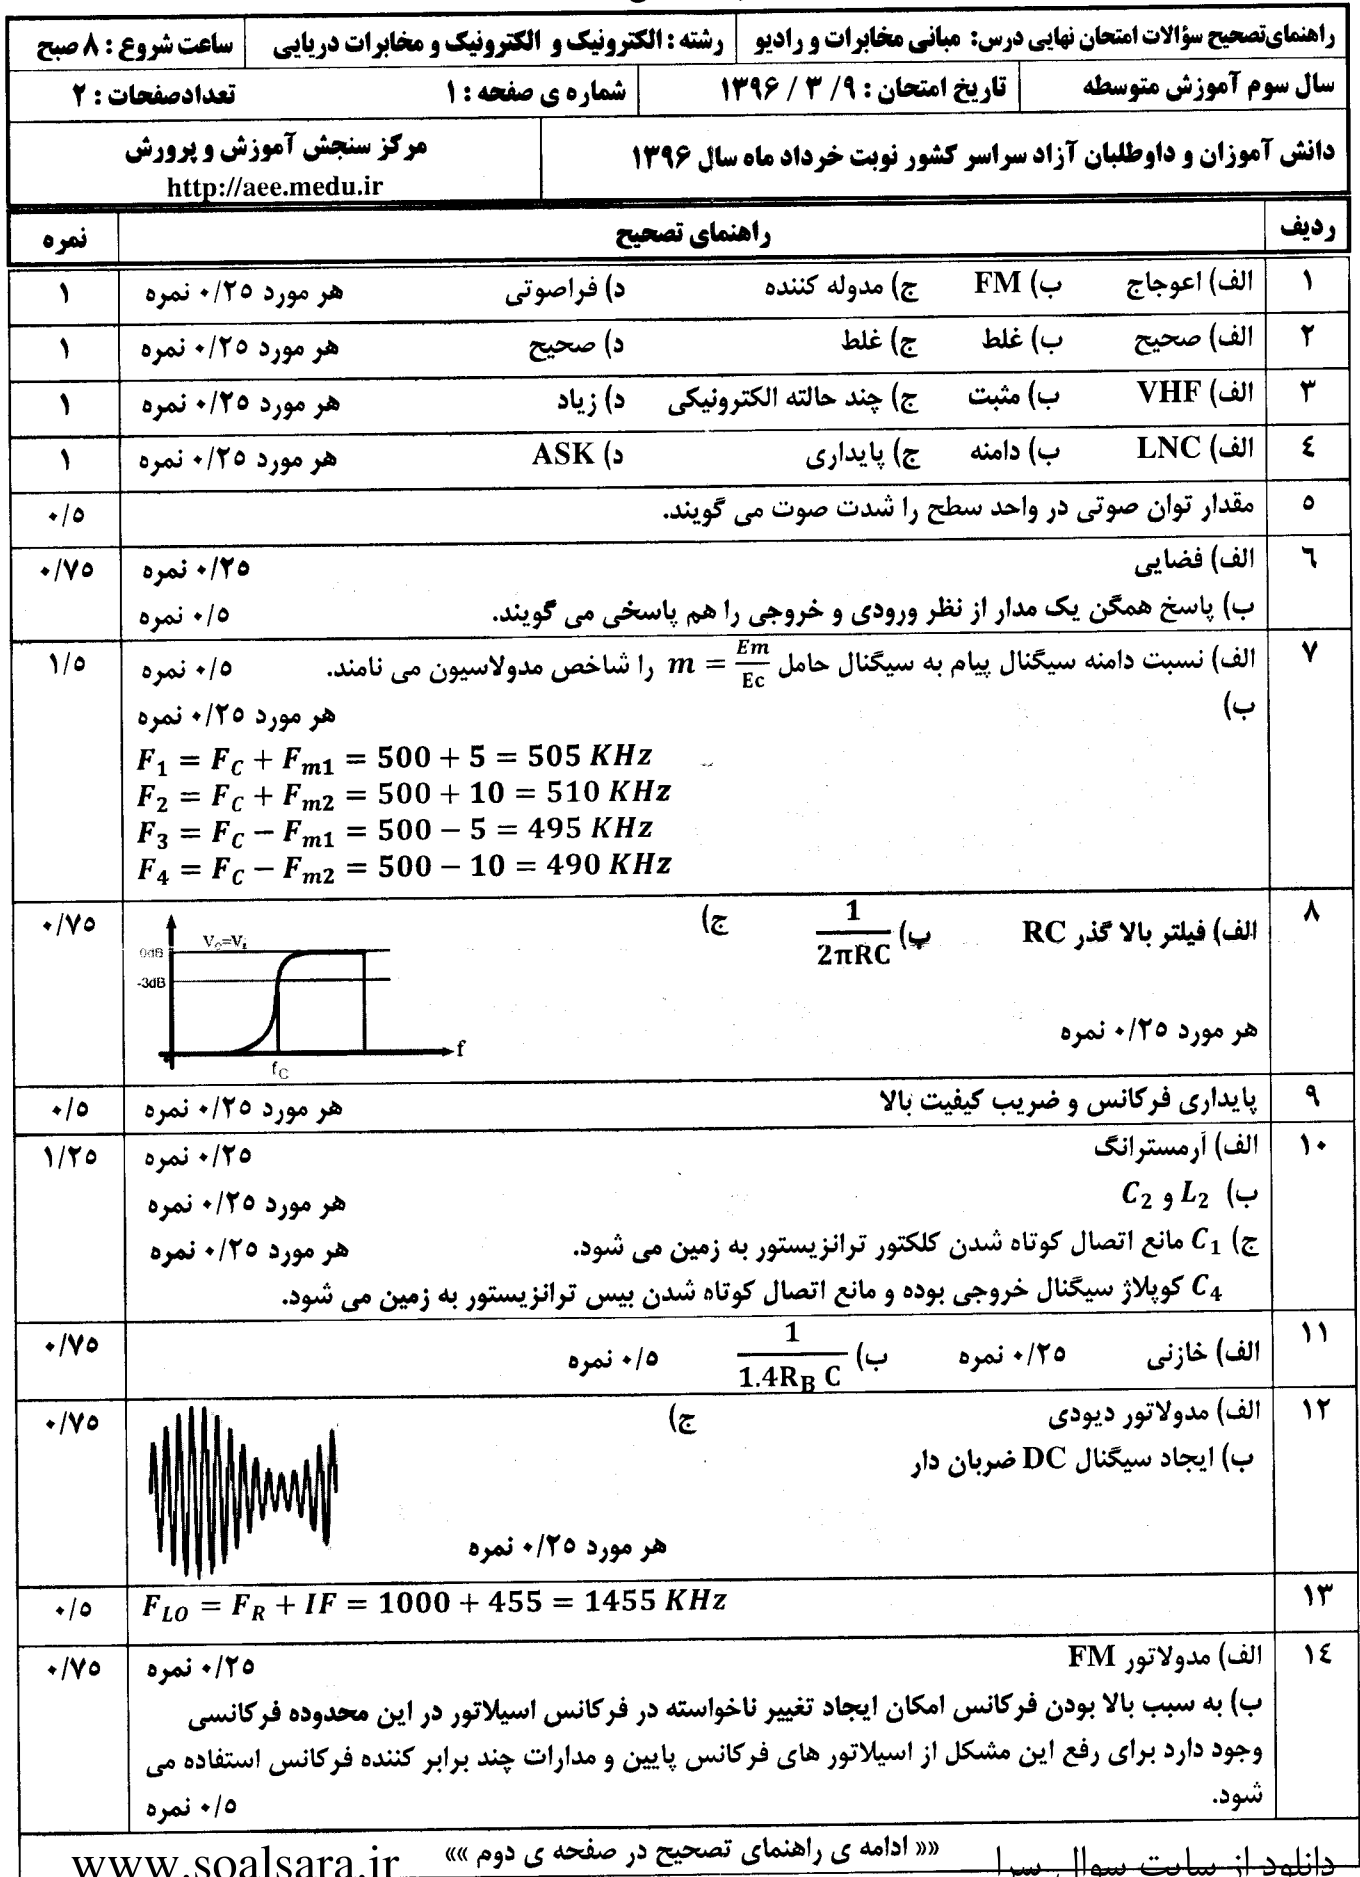 راهنمای‌تصحیح سؤالات امتحان نهایی درس: مبانی مخابرات و رادیو رشته : الکترونیک و الکترونیک و مخابرات دریایی ساعت شروع : ۸ صبح
سال سوم آموزش متوسطه تاریخ امتحان : ۹/ ۳ / ۱۳۹۶ شماره ی صفحه : ۱ تعدادصفحات : ۲
دانش آموزان و داوطلبان آزاد سراسر کشور نوبت خرداد ماه سال ۱۳۹۶ مرکز سنجش آموزش و پرورش
http://aee.medu.ir
ردیف راهنمای تصحیح نمره
۱ الف) اعوجاج ب) FM ج) مدوله کننده د) فراصوتی هر مورد ۰/۲۵ نمره ۱
۲ الف) صحیح ب) غلط ج) غلط د) صحیح هر مورد ۰/۲۵ نمره ۱
۳ الف) VHF ب) مثبت ج) چند حالته الکترونیکی د) زیاد هر مورد ۰/۲۵ نمره ۱
٤ الف) LNC ب) دامنه ج) پایداری د) ASK هر مورد ۰/۲۵ نمره ۱
۵ مقدار توان صوتی در واحد سطح را شدت صوت می گویند. ۰/۵
٦ الف) فضایی ۰/۲۵ نمره ۰/۷۵
ب) پاسخ همگن یک مدار از نظر ورودی و خروجی را هم پاسخی می گویند. ۰/۵ نمره
۷ الف) نسبت دامنه سیگنال پیام به سیگنال حامل m = Em/Ec را شاخص مدولاسیون می نامند. ۰/۵ نمره ۱/۵
ب) هر مورد ۰/۲۵ نمره
F₁ = F_C + F_m1 = 500 + 5 = 505 KHz
F₂ = F_C + F_m2 = 500 + 10 = 510 KHz
F₃ = F_C − F_m1 = 500 − 5 = 495 KHz
F₄ = F_C − F_m2 = 500 − 10 = 490 KHz
۸ الف) فیلتر بالا گذر RC ب) 1/2πRC ج) ۰/۷۵
0dB
-3dB
f
f_C
هر مورد ۰/۲۵ نمره
۹ پایداری فرکانس و ضریب کیفیت بالا هر مورد ۰/۲۵ نمره ۰/۵
۱۰ الف) آرمسترانگ ۰/۲۵ نمره ۱/۲۵
ب) L₂ و C₂ هر مورد ۰/۲۵ نمره
ج) C₁ مانع اتصال کوتاه شدن کلکتور ترانزیستور به زمین می شود. هر مورد ۰/۲۵ نمره
C₄ کوپلاژ سیگنال خروجی بوده و مانع اتصال کوتاه شدن بیس ترانزیستور به زمین می شود.
۱۱ الف) خازنی ۰/۲۵ نمره ب) 1/1.4R_B C ۰/۵ نمره ۰/۷۵
۱۲ الف) مدولاتور دیودی ج) ۰/۷۵
ب) ایجاد سیگنال DC ضربان دار
هر مورد ۰/۲۵ نمره
۱۳ F_LO = F_R + IF = 1000 + 455 = 1455 KHz ۰/۵
۱٤ الف) مدولاتور FM ۰/۲۵ نمره ۰/۷۵
ب) به سبب بالا بودن فرکانس امکان ایجاد تغییر ناخواسته در فرکانس اسیلاتور در این محدوده فرکانسی
وجود دارد برای رفع این مشکل از اسیلاتور های فرکانس پایین و مدارات چند برابر کننده فرکانس استفاده می
شود. ۰/۵ نمره
«« ادامه ی راهنمای تصحیح در صفحه ی دوم »»
دانلود از سایت سوال سرا www.soalsara.ir